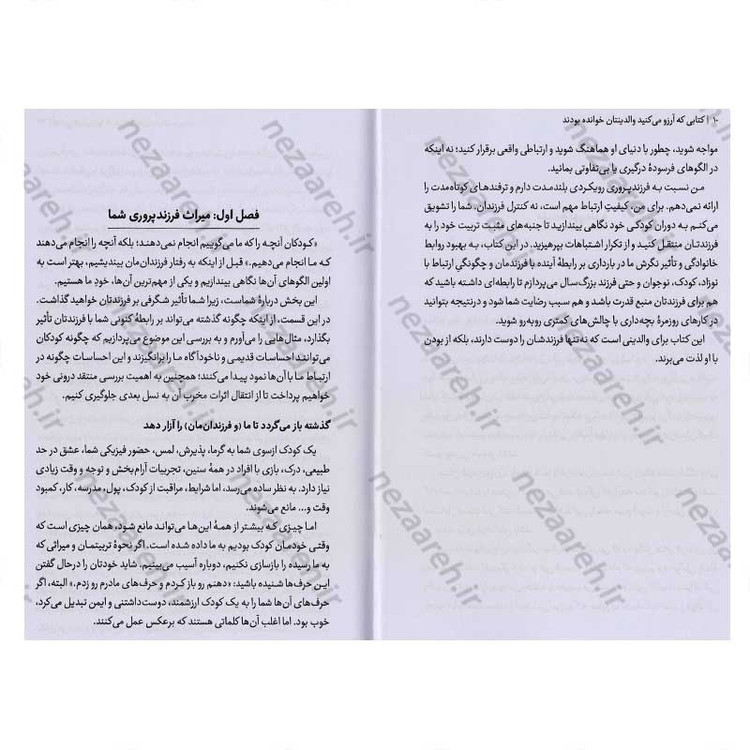 ۱۰ | کتابی که آرزو می‌کنید والدینتان خوانده بودند
مواجه شوید، چطور با دنیای او هماهنگ شوید و ارتباطی واقعی برقرار کنید؛ نه اینکه
در الگوهای فرسودهٔ درگیری یا بی‌تفاوتی بمانید.
من نسبت به فرزندپروری رویکردی بلندمدت دارم و ترفندهای کوتاه‌مدت را
ارائه نمی‌دهم. برای من، کیفیتِ ارتباط مهم است، نه کنترل فرزندان. شما را تشویق
می‌کنم به دوران کودکی خود نگاهی بیندازید تا جنبه‌های مثبت تربیت خود را به
فرزندتان منتقل کنید و از تکرار اشتباهات بپرهیزید. در این کتاب، به بهبود روابط
خانوادگی و تأثیر نگرش ما در بارداری بر رابطهٔ آینده با فرزندمان و چگونگیِ ارتباط با
نوزاد، کودک، نوجوان و حتی فرزند بزرگ‌سال می‌پردازم تا رابطه‌ای داشته باشید که
هم برای فرزندتان منبع قدرت باشد و هم سبب رضایت شما شود و درنتیجه بتوانید
در کارهای روزمرهٔ بچه‌داری با چالش‌های کمتری روبه‌رو شوید.
این کتاب برای والدینی است که نه‌تنها فرزندشان را دوست دارند، بلکه از بودن
با او لذت می‌برند.
فصل اول: میراث فرزندپروری شما
«کودکان آنچه را که ما می‌گوییم انجام نمی‌دهند؛ بلکه آنچه را انجام می‌دهند
که ما انجام می‌دهیم.» قبل از اینکه به رفتار فرزندان‌مان بیندیشیم، بهتر است به
اولین الگوهای آن‌ها نگاهی بیندازیم و یکی از مهم‌ترین آن‌ها، خودِ ما هستیم.
این بخش دربارهٔ شماست، زیرا شما تأثیر شگرفی بر فرزندتان خواهید گذاشت.
در این قسمت، از اینکه چگونه گذشته می‌تواند بر رابطهٔ کنونی شما با فرزندتان تأثیر
بگذارد، مثال‌هایی را می‌آورم و به بررسی این موضوع می‌پردازیم که چگونه کودکان
می‌توانند احساسات قدیمی و ناخودآگاه ما را برانگیزند و این احساسات چگونه در
ارتباط ما با آن‌ها نمود پیدا می‌کنند؛ همچنین به اهمیت بررسی منتقد درونی خود
خواهیم پرداخت تا از انتقال اثرات مخرب آن به نسل بعدی جلوگیری کنیم.
گذشته باز می‌گردد تا ما (و فرزندان‌مان) را آزار دهد
یک کودک ازسوی شما به گرما، پذیرش، لمس، حضور فیزیکی شما، عشق در حد
طبیعی، درک، بازی با افراد در همهٔ سنین، تجربیات آرام‌بخش و توجه و وقت زیادی
نیاز دارد. به نظر ساده می‌رسد، اما شرایط، مراقبت از کودک، پول، مدرسه، کار، کمبود
وقت و... مانع می‌شوند.
اما چیزی که بیشتر از همهٔ این‌ها می‌تواند مانع شود، همان چیزی است که
وقتی خودمان کودک بودیم به ما داده شده است. اگر نحوهٔ تربیتمان و میراثی که
به ما رسیده را بازسازی نکنیم، دوباره آسیب می‌بینیم. شاید خودتان را درحال گفتن
این حرف‌ها شنیده باشید: «دهنم رو باز کردم و حرف‌های مادرم رو زدم.» البته، اگر
حرف‌های آن‌ها شما را به یک کودک ارزشمند، دوست‌داشتنی و ایمن تبدیل می‌کرد،
خوب بود. اما اغلب آن‌ها کلماتی هستند که برعکس عمل می‌کنند.
nezaareh.ir
nezaareh.ir
nezaareh.ir
nezaareh.ir
nezaareh.ir
nezaareh.ir